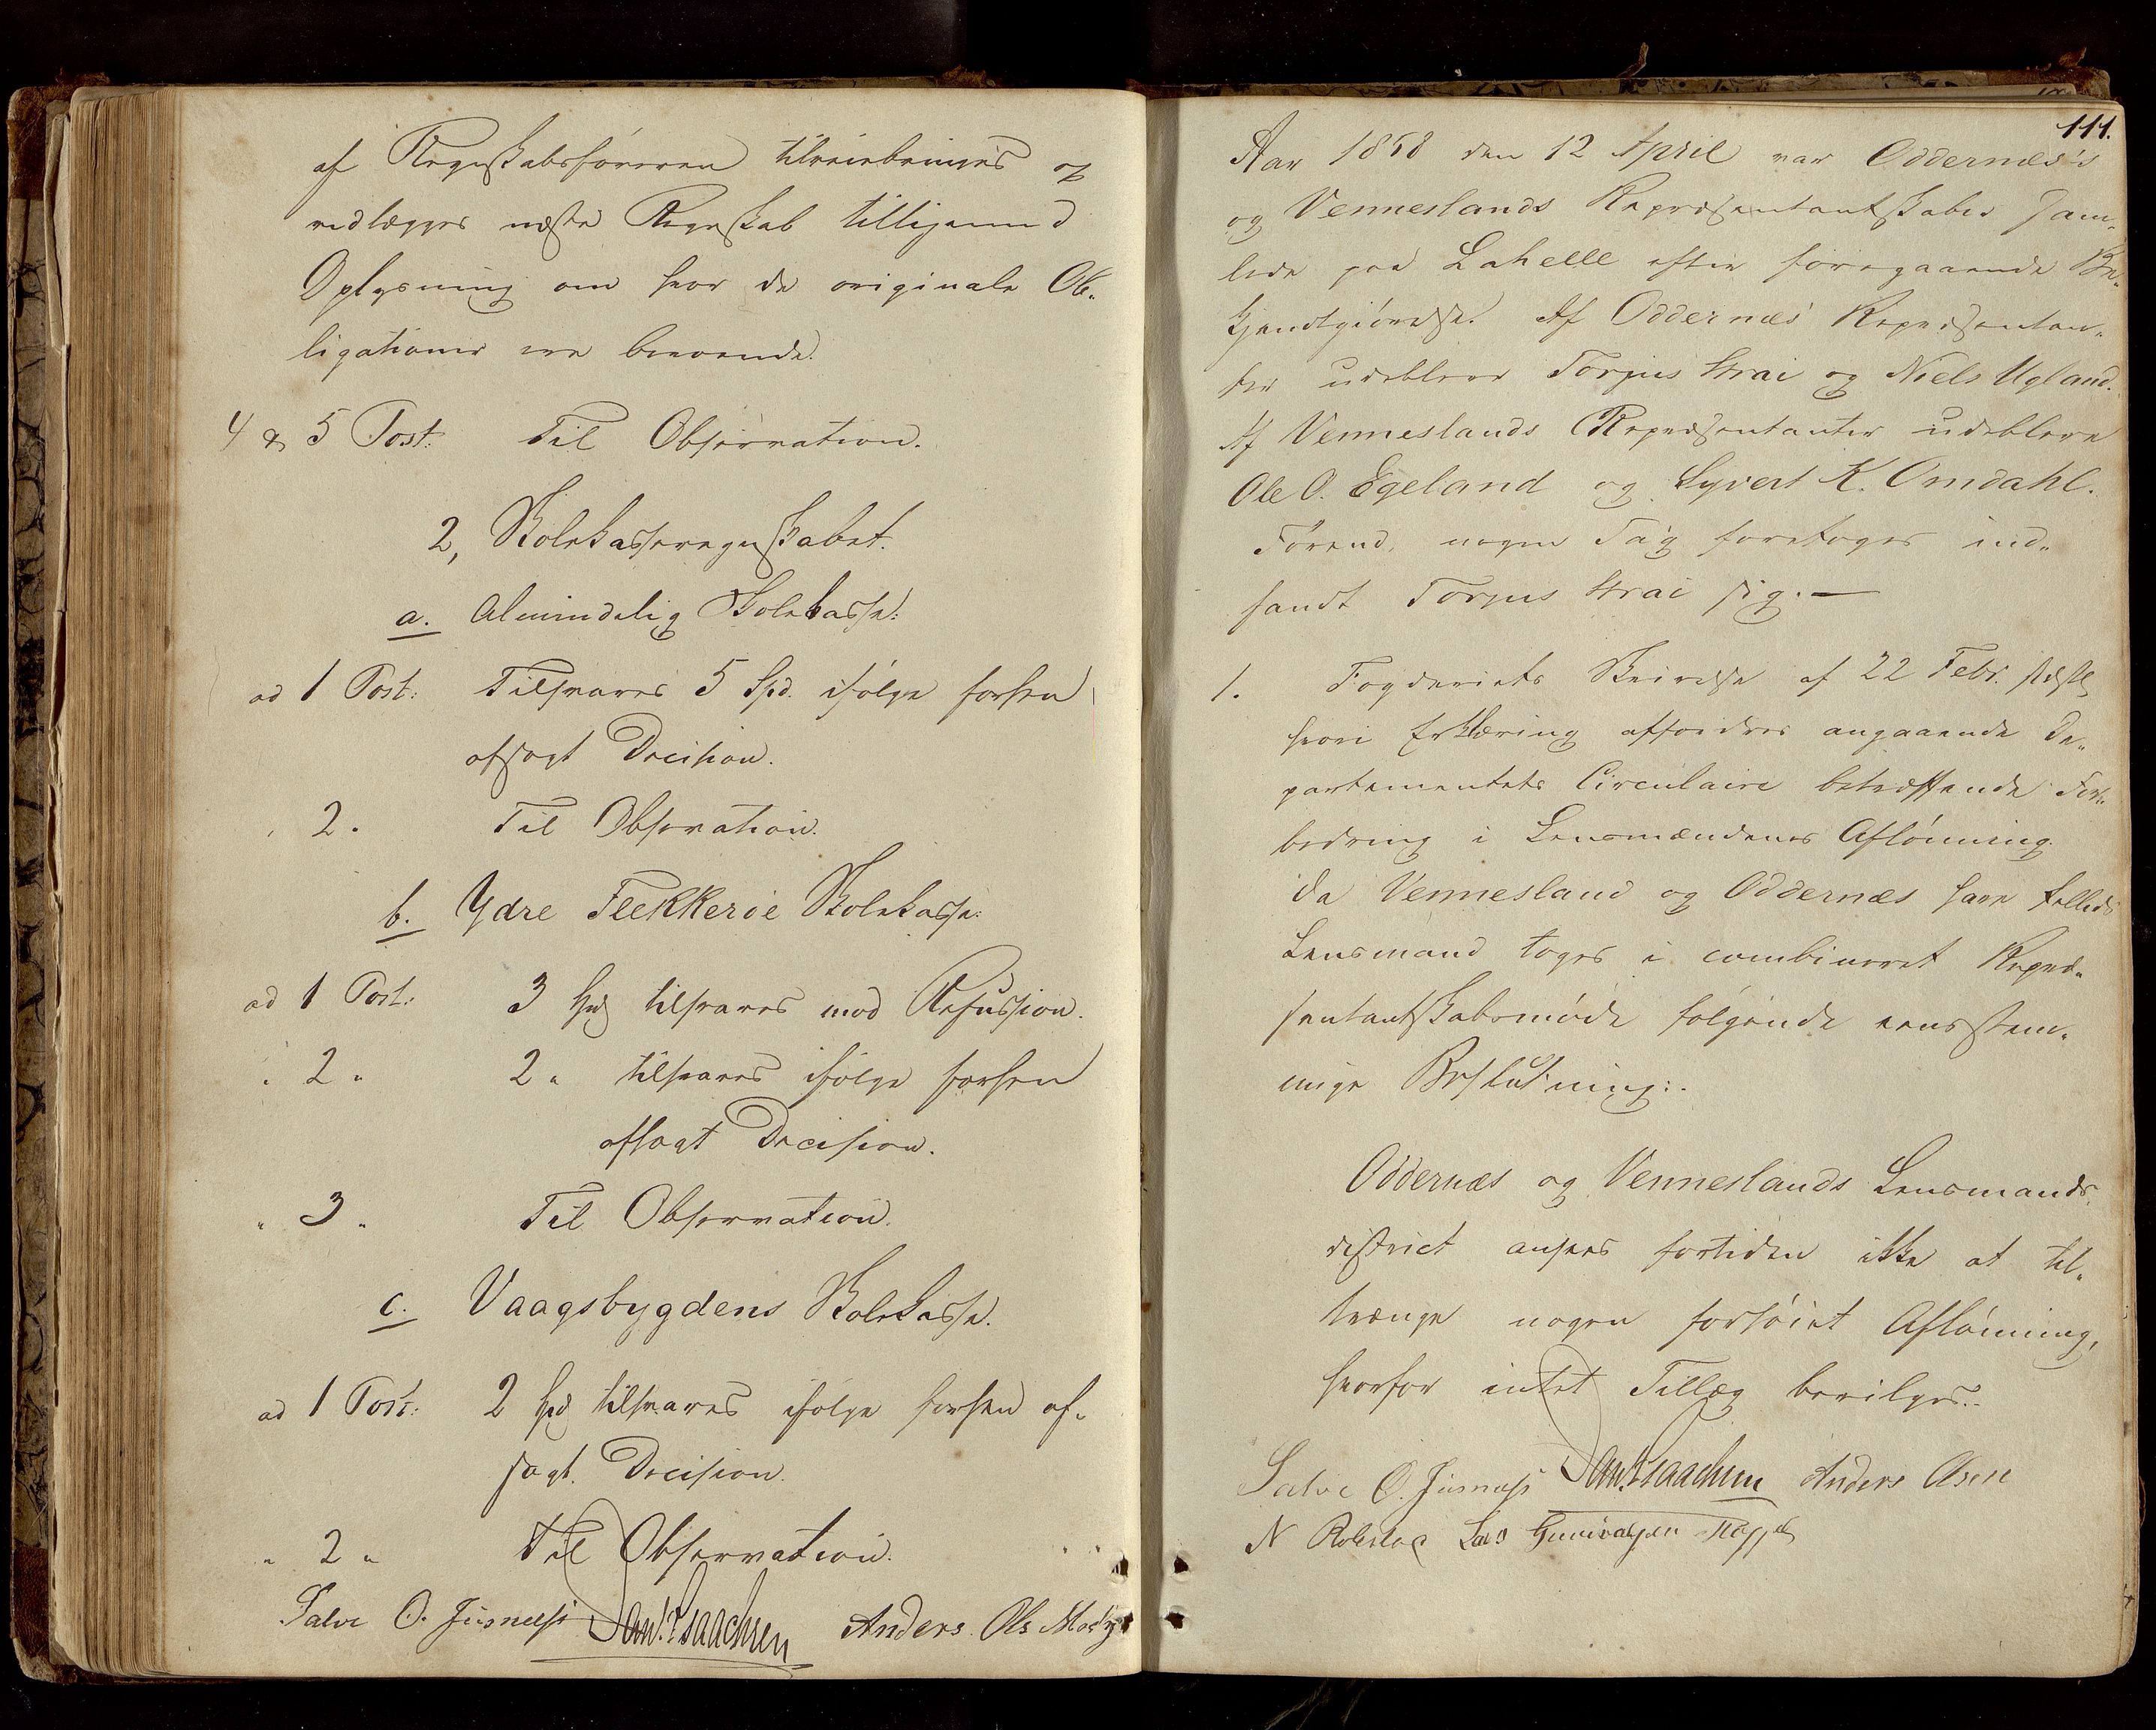 af Regnskabsføreren tilveiebringes og
vedlægges næste Regnskab tilligemed
Oplysning om hvor de originale Ob-
ligationer ere beroende.
4 & 5 Post: Til Observation.
2, Skolekasseregnskabet.
a. Almindelig Skolekasse:
ad 1 Post: Tilsvares 5 Spd. ifølge forhen
afsagt Decision.
" 2. Til Observation.
b. Ydre Flekkerøe Skolekasse:
ad 1 Post: 3 Spd tilsvares mod Refusion.
" 2 " 2 " tilsvares ifølge forhen
afsagt Decision.
" 3 " Til Observation.
c. Vaagsbygdens Skolekasse.
ad 1 Post: 2 Spd tilsvares ifølge forhen af-
sagt Decision.
" 2 " Til Observation.
Salve O. Isaachsen Anders Ols
111.
Aar 1858 den 12 April var Oddernæs's
og Venneslands Repræsentantskaber sam-
lede paa Lahelle efter foregaaende Be-
kjendtgiørelse. Af Oddernæs Repræsentan-
ter udebleve Torjus Strai og Niels Ugland.
Af Venneslands Repræsentanter udebleve
Ole O. Egeland og Syvert K. Omdahl.
Førend nogen Sag foretoges ind-
fandt Torjus Strai sig. —
1. Fogderiets Skrivelse af 22 Febr. sidstl.
hvori Erklæring affordres angaaende De-
partementets Circulaire betræffende For-
bedring i Lensmændenes Aflønning.
Da Vennesland og Oddernæs have fælleds
Lensmand toges i combineret Repræ-
sentantskabsmøde følgende eenstem-
mige Beslutning:.
Oddernæs og Venneslands Lensmands-
district ansees fortiden ikke at til-
trænge nogen forhøiet Aflønning,
hvorfor intet Tillæg bevilges.
Salve O. Isaachsen Anders Osen
N Lars